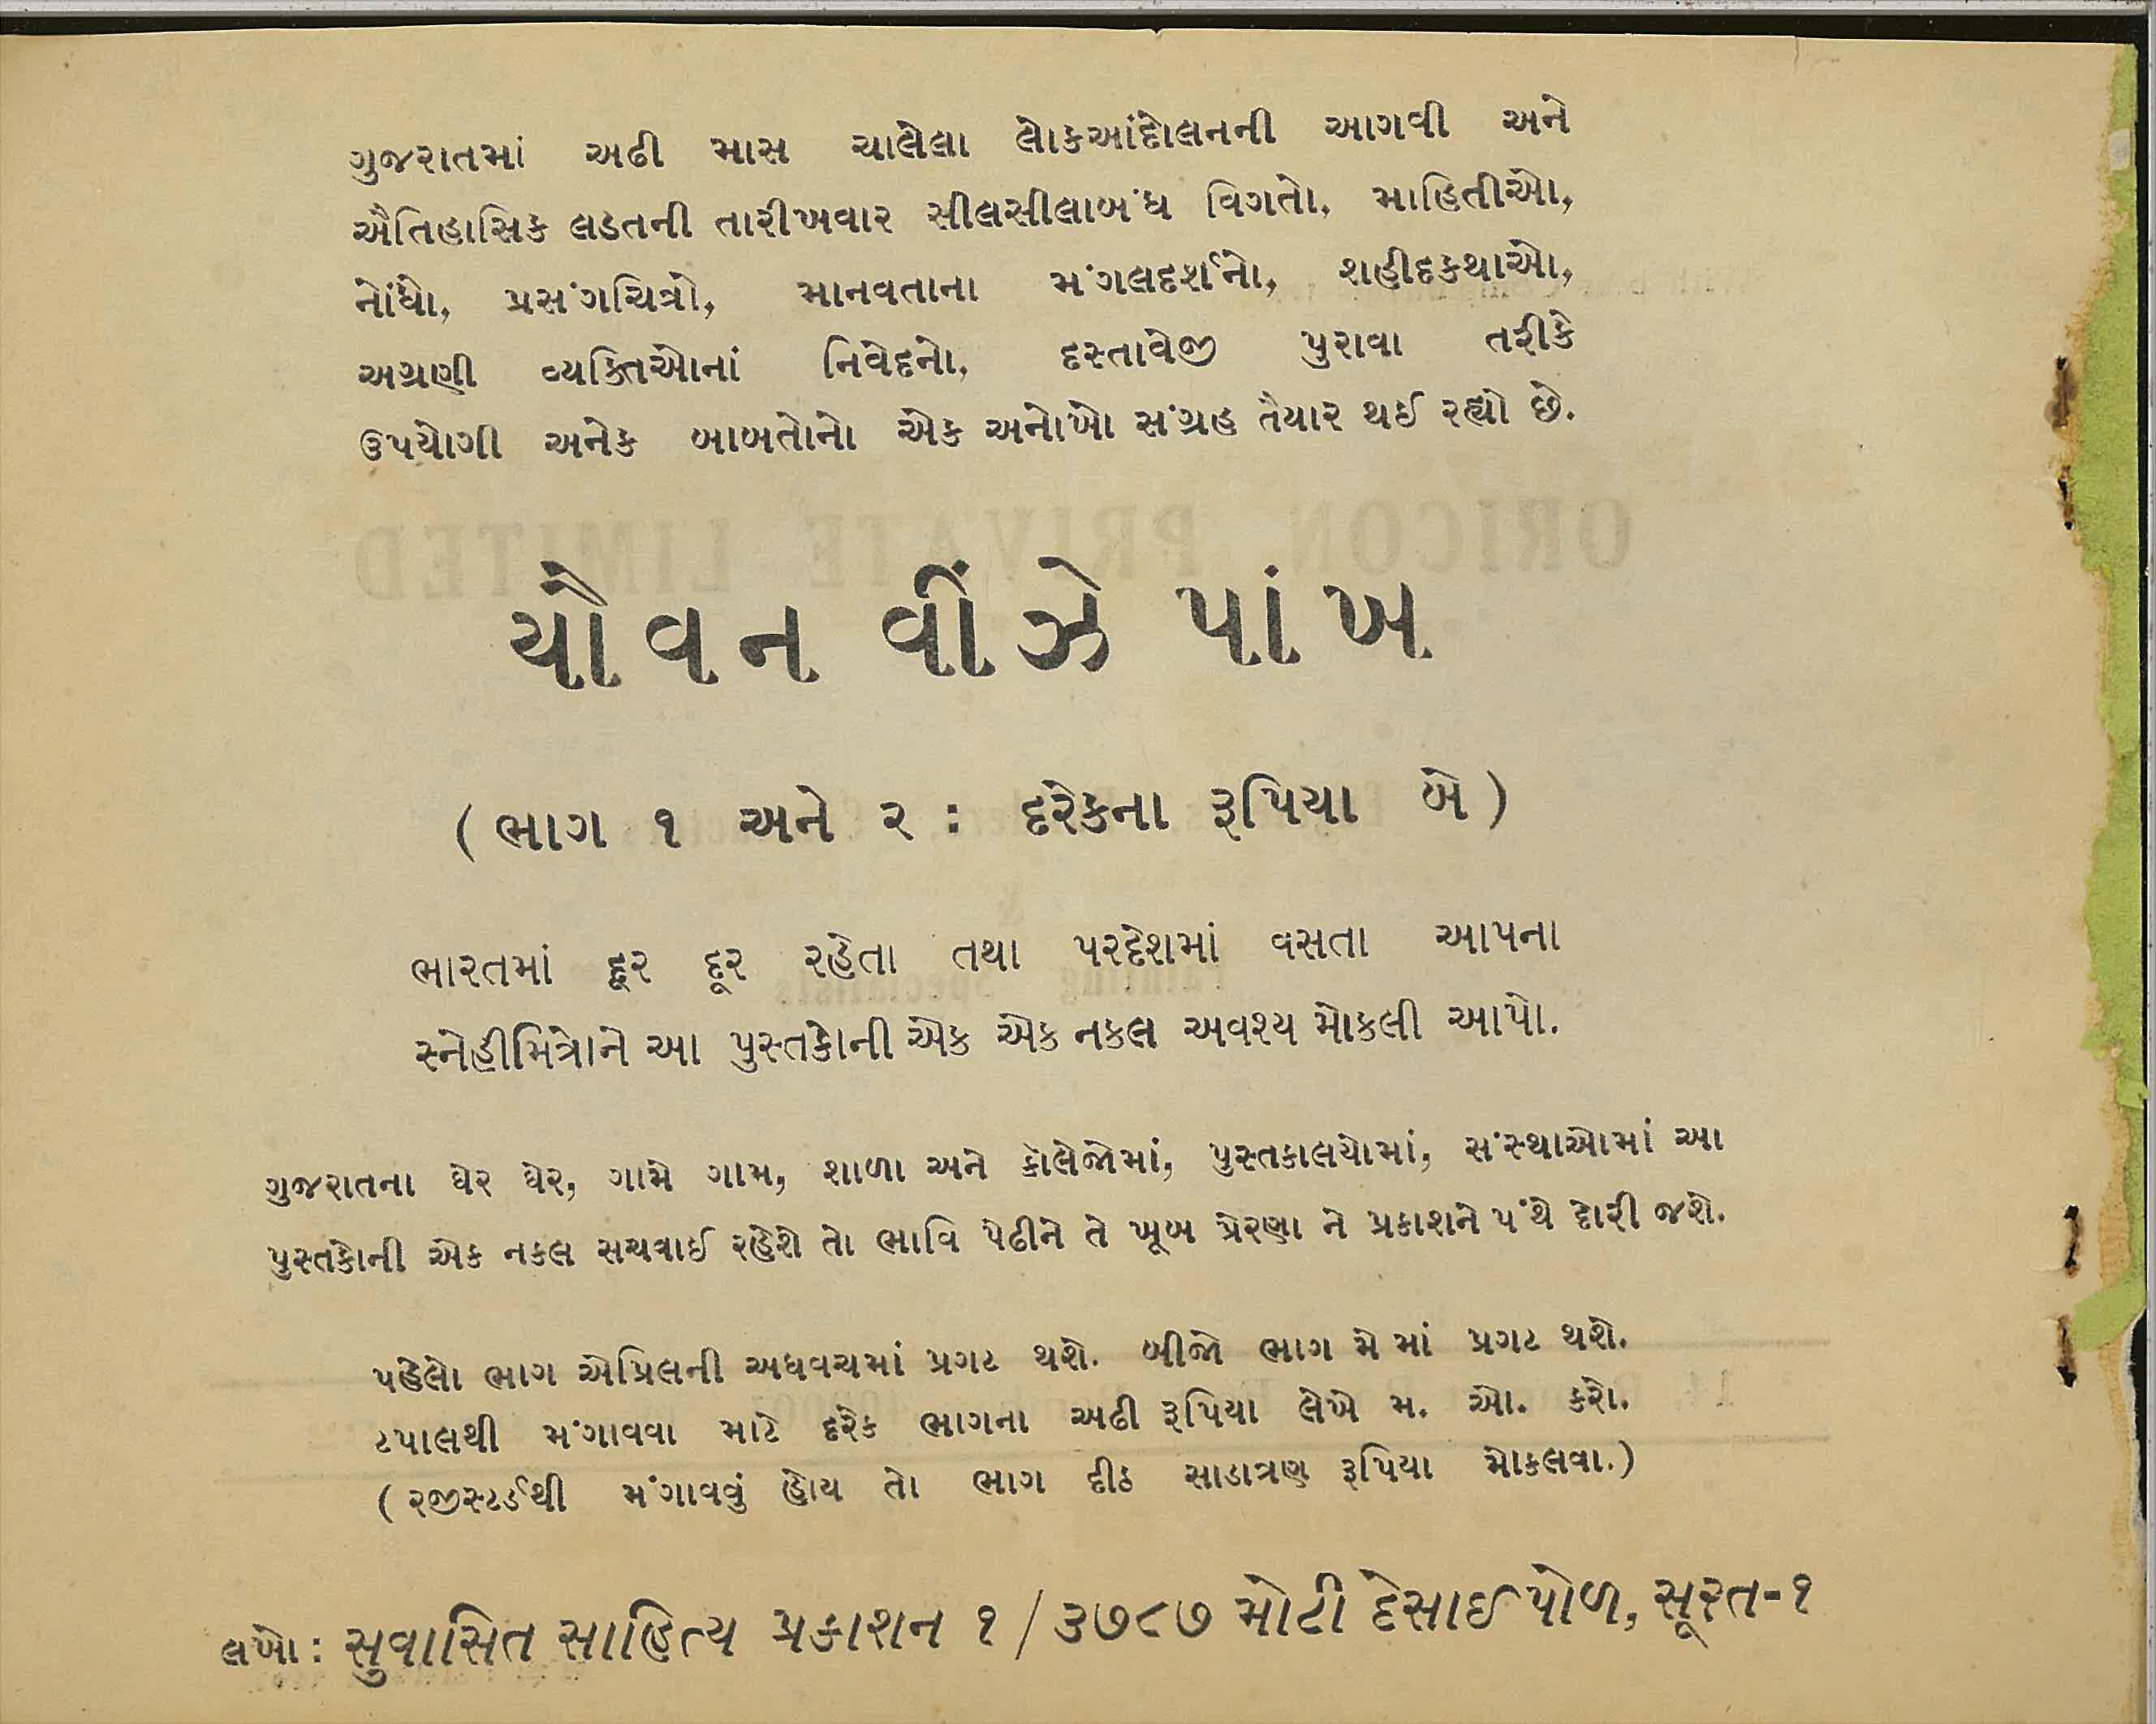 ગુજરાતમાં અઢી માસ ચાલેલા લોકઆંદોલનની આગવી અને
ઐતિહાસિક લડતની તારીખવાર સીલસીલાબંધ વિગતો, માહિતીઓ,
નોંધો, પ્રસંગચિત્રો, માનવતાના મંગલદર્શનો, શહીદકથાઓ,
અગ્રણી વ્યક્તિઓનાં નિવેદનો, દસ્તાવેજી પુરાવા તરીકે
ઉપયોગી અનેક બાબતોનો એક અનોખો સંગ્રહ તૈયાર થઈ રહ્યો છે.
યૌવન વીંઝે પાંખ
(ભાગ ૧ અને ૨ : દરેકના રૂપિયા બે)
ભારતમાં દૂર દૂર રહેતા તથા પરદેશમાં વસતા આપના
સ્નેહીમિત્રોને આ પુસ્તકોની એક એક નકલ અવશ્ય મોકલી આપો.
ગુજરાતના ઘેર ઘેર, ગામે ગામ, શાળા અને કોલેજોમાં, પુસ્તકાલયોમાં, સંસ્થાઓમાં આ
પુસ્તકોની એક નકલ સચવાઈ રહેશે તો ભાવિ પેઢીને તે ખૂબ પ્રેરણા ને પ્રકાશને પંથે દોરી જશે.
પહેલો ભાગ એપ્રિલની અધવચમાં પ્રગટ થશે. બીજો ભાગ મે માં પ્રગટ થશે.
ટપાલથી મંગાવવા માટે દરેક ભાગના અઢી રૂપિયા લેખે મ. ઓ. કરો.
(રજીસ્ટર્ડથી મંગાવવું હોય તો ભાગ દીઠ સાડાત્રણ રૂપિયા મોકલવા.)
લખો : સુવાસિત સાહિત્ય પ્રકાશન ૧/૩૭૮૭ મોટી દેસાઈ પોળ, સૂરત-૧